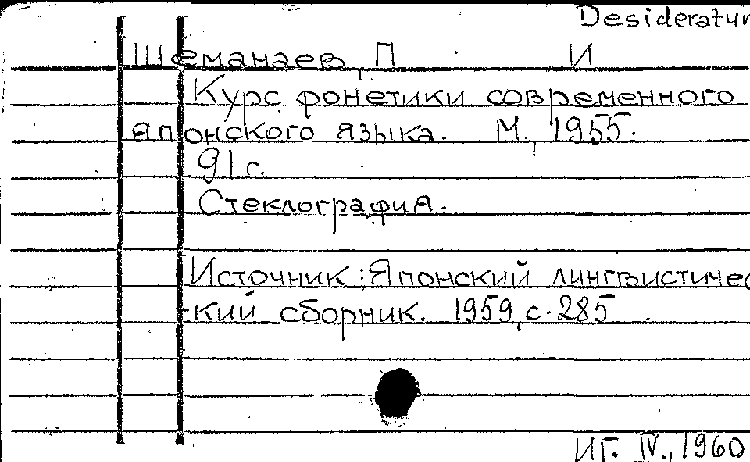 Desideratum
Шеманаев, П И
Курс фонетики современного
японского языка. М., 1955.
91 с.
Стеклография.
Источник: Японский лингвистичес
кий сборник. 1959, с. 285
ИГ. IV., 1960